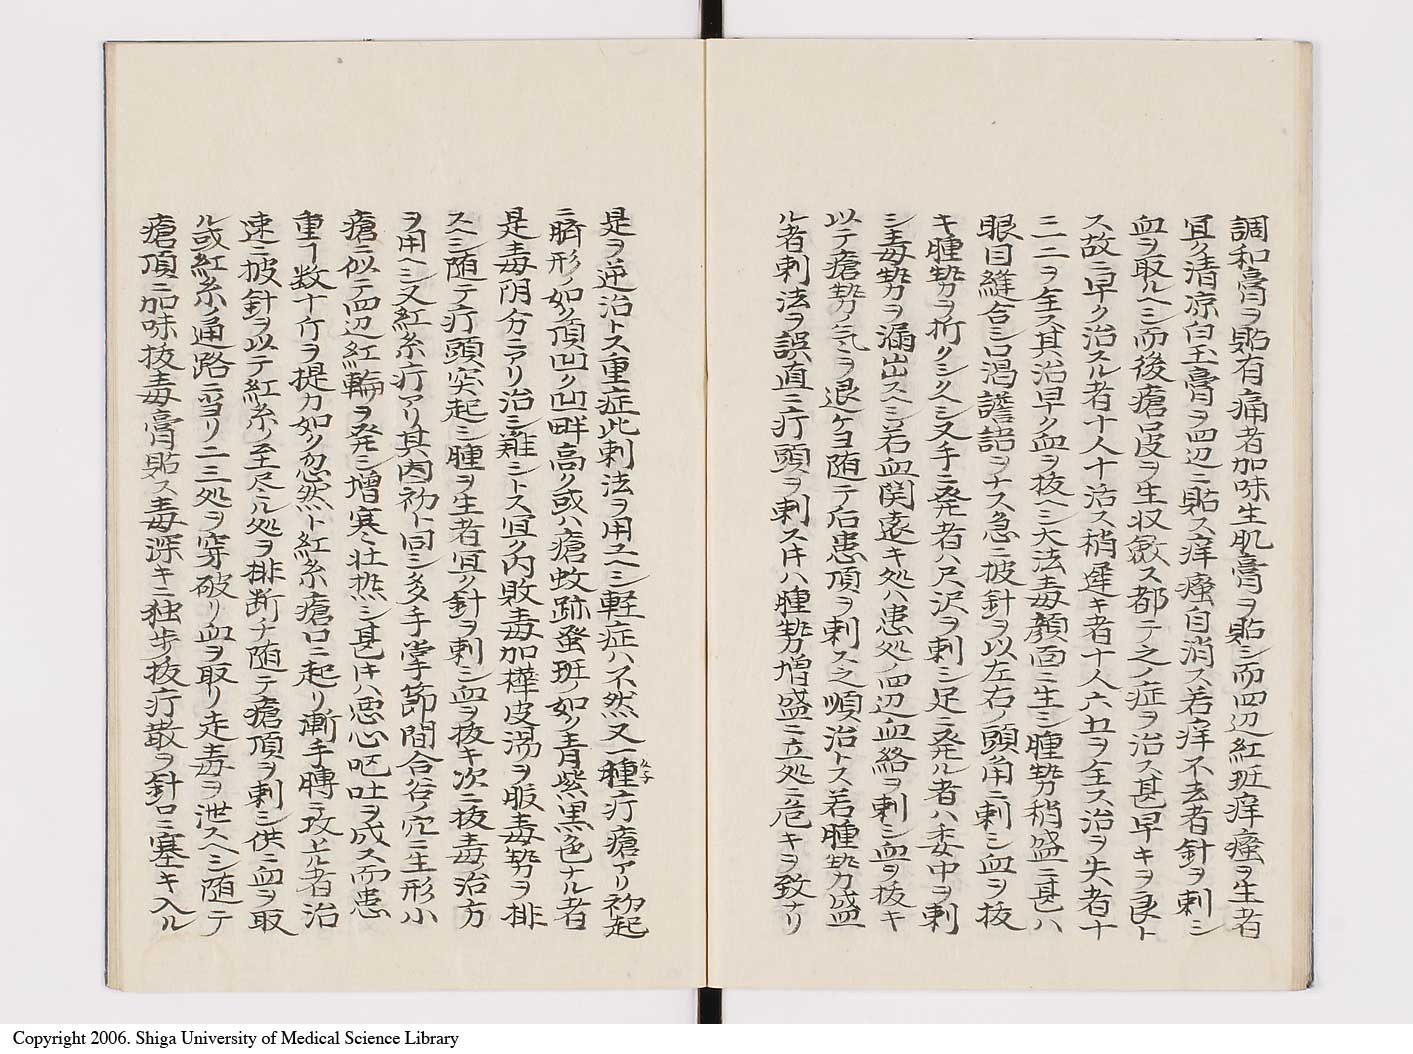 調和膏ヲ貼有痛者加味生肌膏ヲ貼シ而四辺紅斑痒瘙ヲ生者
冝ク清凉白玉膏ヲ四辺ニ貼ス痒瘙自消ス若痒不去者針ヲ刺シ
血ヲ取ルヘシ而後瘡口皮ヲ生収斂ス都テ之ノ症ヲ治ス甚早キヲ良ト
ス故ニ早ク治スル者十人十活ス稍遅キ者十人六五ヲ全ス治ヲ失者十
ニ二ヲ全ス其治早ク血ヲ抜ヘシ大法毒顔面ニ生シ腫勢稍盛ニ甚ハ
眼目縫合シ口渇譫語ヲナス急ニ披針ヲ以左右ノ頭角ニ刺シ血ヲ抜
キ腫勢ヲ折クシクヘシ又手ニ発者ハ尺沢ヲ刺シ足ニ発ル者ハ委中ヲ刺
シ毒勢ヲ漏出スヘシ若血関遠キ処ハ患処ノ四辺血絡ヲ刺シ血ヲ抜キ
以テ瘡勢気ヲ退ケヨ随テ后患頂ヲ刺ス之順治トス若腫勢力盛
ル者刺法ヲ誤直ニ疔頭ヲ刺ス片ハ腫勢増盛ニ立処ニ危キヲ致ナリ
是ヲ逆治トス重症此刺法ヲ用ユヘシ軽症ハ不然又一種疔瘡アリ初起
ニ臍形ノ如ク頂凹ク凸畔高ク或ハ瘡蚊跡蚤斑ノ如ク青紫黒色ナル者
是毒阴分ニアリ治シ難シトス冝ク内敗毒加樺皮湯ヲ服毒勢ヲ排
スヘシ随テ疔頭突起シ腫ヲ生者冝ク針ヲ刺シ血ヲ抜キ次ニ抜毒ノ治方
ヲ用ヘシ又紅糸疔アリ其因初ト同シ多手掌節間合谷ノ穴ニ生形小
瘡ニ似テ四辺紅輪ヲ発シ増寒壮热シ甚片ハ悪心呕吐ヲ成ス而患
重ヿ数十斤ヲ提カ如ク忽然ト紅糸瘡口ニ起リ漸手膊ニ攻上ル者治
速ニ披針ヲ以テ紅糸ノ至尽ル処ヲ排断チ随テ瘡頂ヲ刺シ供ニ血ヲ取
ル或紅糸ノ通路ニヨリ二三処ヲ穿破リ血ヲ取リ走毒ヲ泄スヘシ随テ
瘡頂ニ加味抜毒膏貼ス毒深キニ独歩抜疔散ヲ針口ニ塞キ入ル
Copyright 2006. Shiga University of Medical Science Library